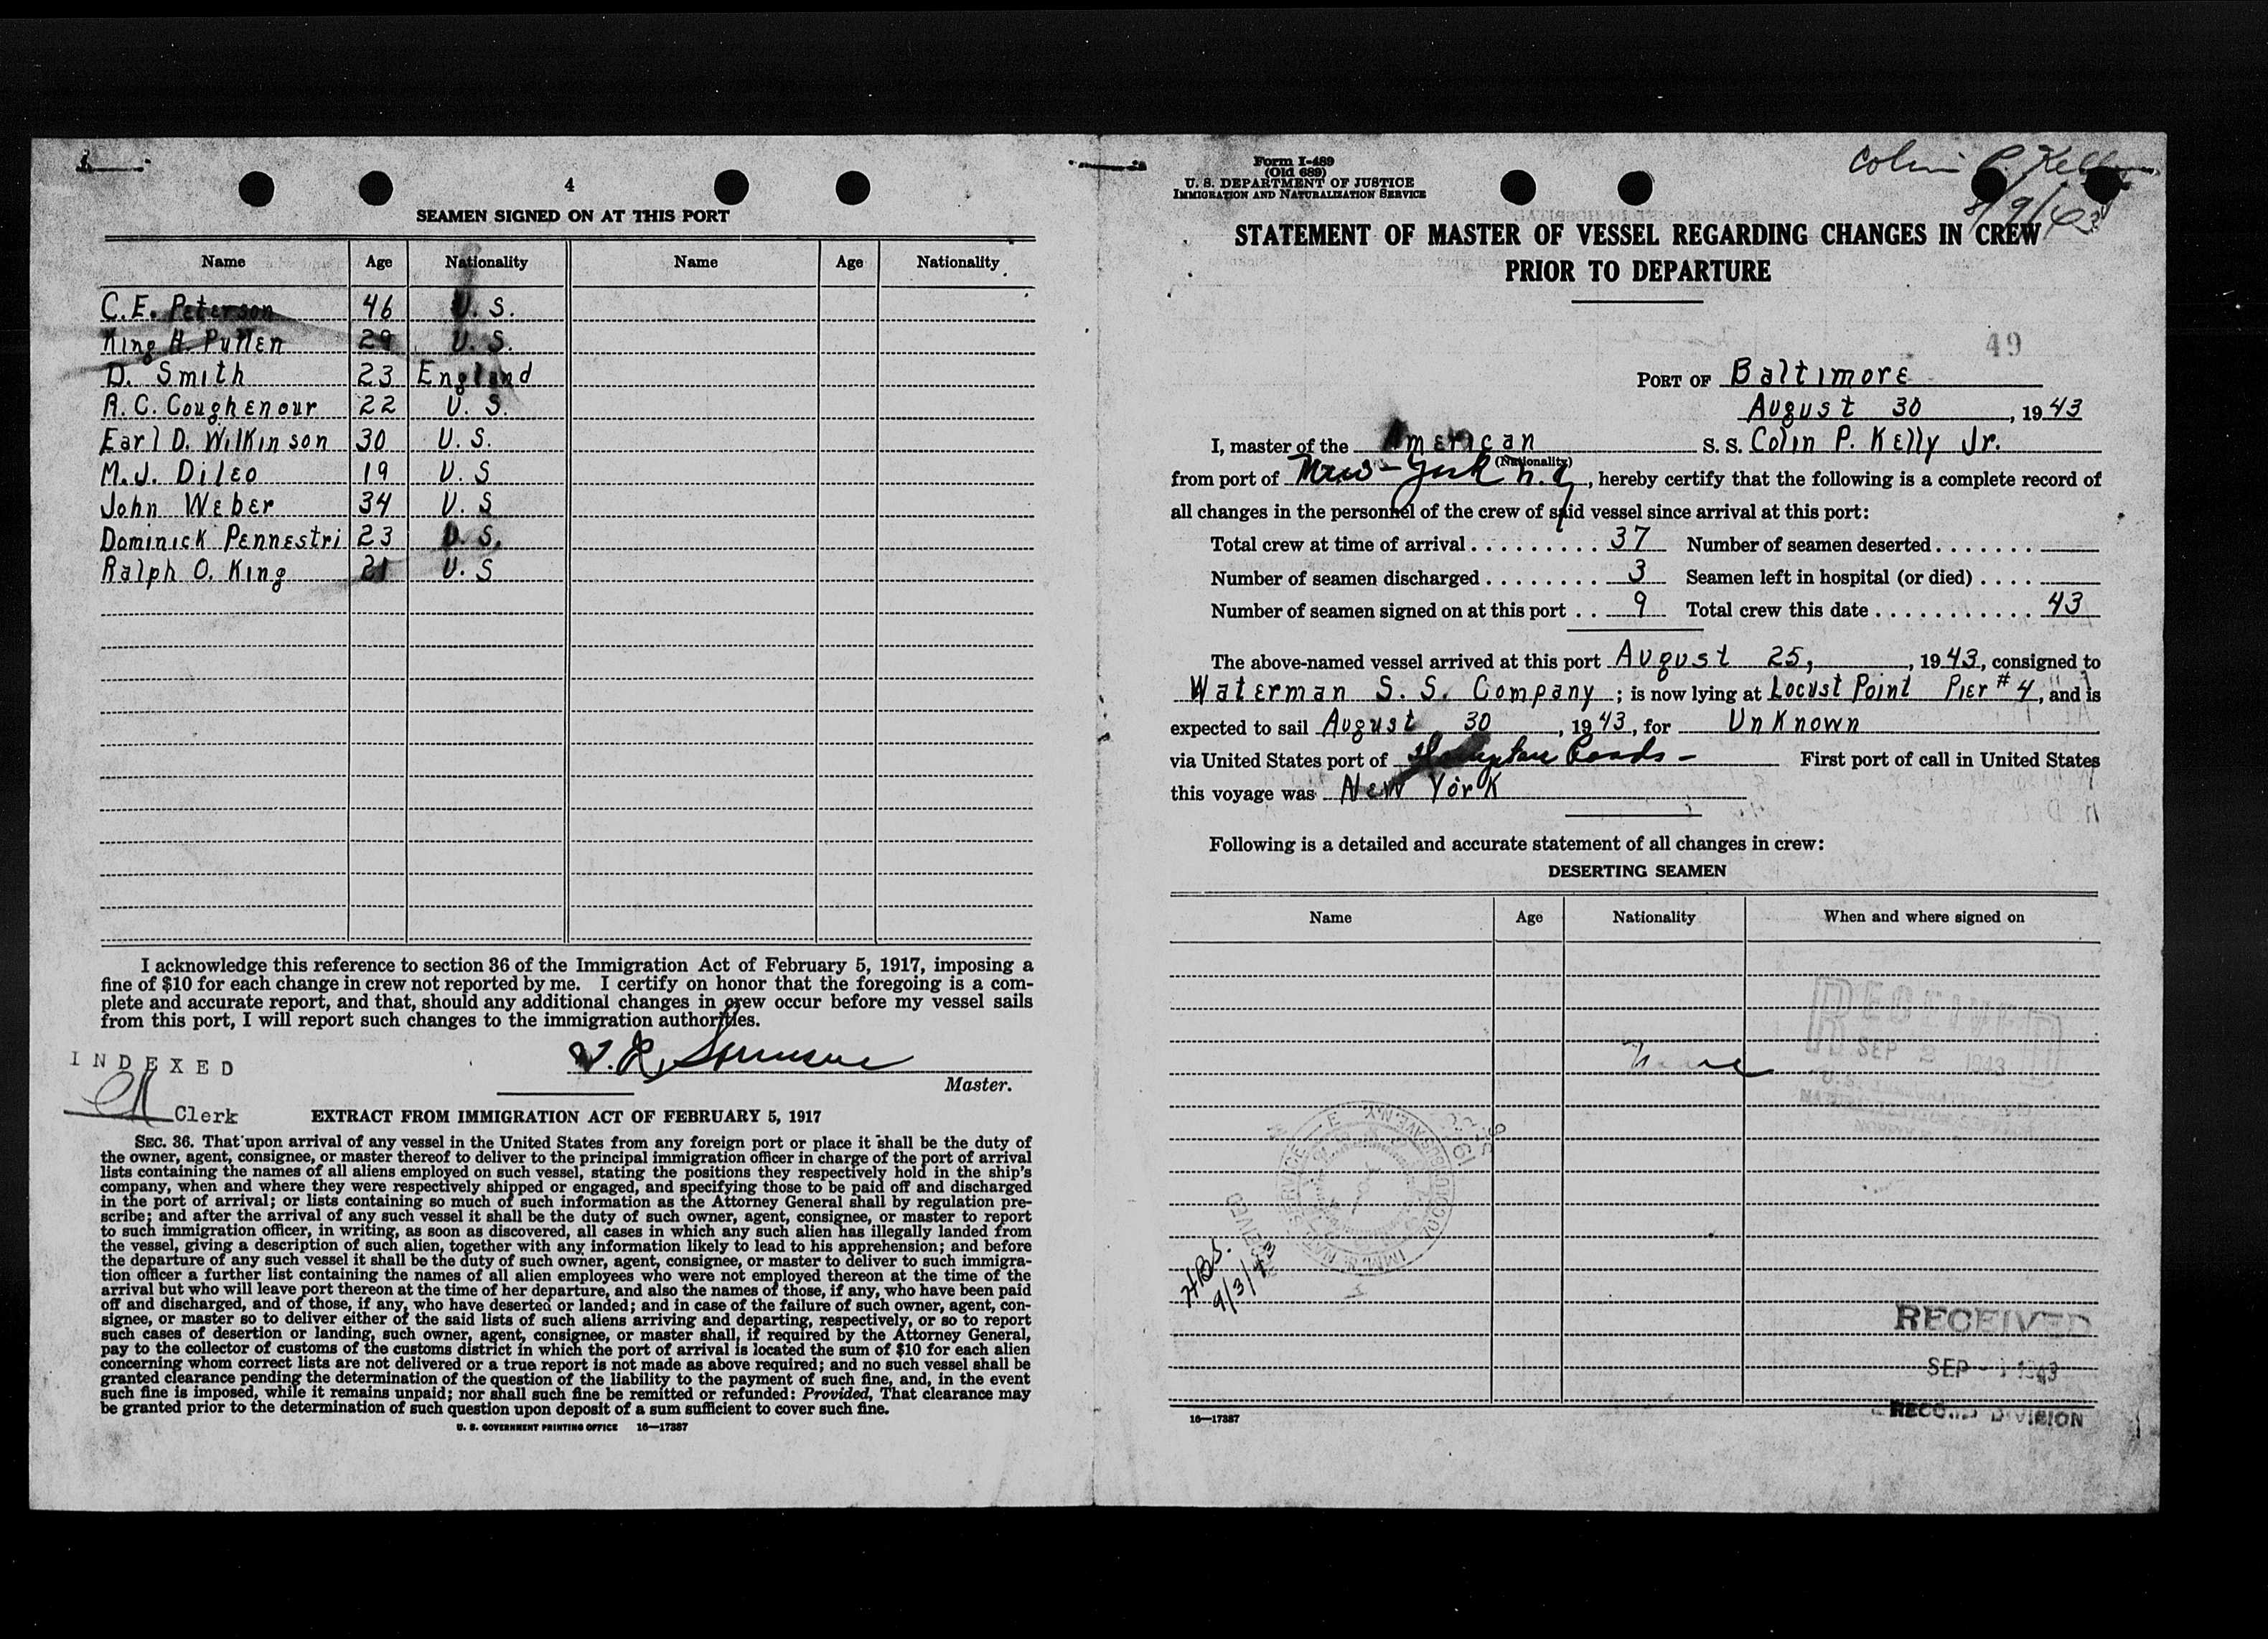 4
SEAMEN SIGNED ON AT THIS PORT
Name Age Nationality Name Age Nationality
C.E. Peterson 46 U. S.
King H. Pullen 29 U. S.
D. Smith 23 England
R.C. Coughenour 22 U. S.
Earl D. Wilkinson 30 U. S.
M.J. Dileo 19 U. S
John Weber 34 U. S
Dominick Pennestri 23 U. S.
Ralph O. King 21 U. S
I acknowledge this reference to section 36 of the Immigration Act of February 5, 1917, imposing a
fine of $10 for each change in crew not reported by me. I certify on honor that the foregoing is a com-
plete and accurate report, and that, should any additional changes in crew occur before my vessel sails
from this port, I will report such changes to the immigration authorities.
INDEXED
Master.
Clerk
EXTRACT FROM IMMIGRATION ACT OF FEBRUARY 5, 1917
SEC. 36. That upon arrival of any vessel in the United States from any foreign port or place it shall be the duty of
the owner, agent, consignee, or master thereof to deliver to the principal immigration officer in charge of the port of arrival
lists containing the names of all aliens employed on such vessel, stating the positions they respectively hold in the ship's
company, when and where they were respectively shipped or engaged, and specifying those to be paid off and discharged
in the port of arrival; or lists containing so much of such information as the Attorney General shall by regulation pre-
scribe; and after the arrival of any such vessel it shall be the duty of such owner, agent, consignee, or master to report
to such immigration officer, in writing, as soon as discovered, all cases in which any such alien has illegally landed from
the vessel, giving a description of such alien, together with any information likely to lead to his apprehension; and before
the departure of any such vessel it shall be the duty of such owner, agent, consignee, or master to deliver to such immigra-
tion officer a further list containing the names of all alien employees who were not employed thereon at the time of the
arrival but who will leave port thereon at the time of her departure, and also the names of those, if any, who have been paid
off and discharged, and of those, if any, who have deserted or landed; and in case of the failure of such owner, agent, con-
signee, or master so to deliver either of the said lists of such aliens arriving and departing, respectively, or so to report
such cases of desertion or landing, such owner, agent, consignee, or master shall, if required by the Attorney General,
pay to the collector of customs of the customs district in which the port of arrival is located the sum of $10 for each alien
concerning whom correct lists are not delivered or a true report is not made as above required; and no such vessel shall be
granted clearance pending the determination of the question of the liability to the payment of such fine, and, in the event
such fine is imposed, while it remains unpaid; nor shall such fine be remitted or refunded: Provided, That clearance may
be granted prior to the determination of such question upon deposit of a sum sufficient to cover such fine.
U. S. GOVERNMENT PRINTING OFFICE 16—17387
Form I-489
(Old 689)
U. S. DEPARTMENT OF JUSTICE
IMMIGRATION AND NATURALIZATION SERVICE
Colin P. Kelly
8/9/43
STATEMENT OF MASTER OF VESSEL REGARDING CHANGES IN CREW
PRIOR TO DEPARTURE
49
PORT OF Baltimore
August 30, 1943
I, master of the American S. S. Colin P. Kelly Jr.
(Nationality)
from port of New-York N.Y, hereby certify that the following is a complete record of
all changes in the personnel of the crew of said vessel since arrival at this port:
Total crew at time of arrival . . . . . . . . . 37 Number of seamen deserted . . . . . . .
Number of seamen discharged . . . . . . . . 3 Seamen left in hospital (or died) . . . .
Number of seamen signed on at this port . . 9 Total crew this date . . . . . . . . . . . 43
The above-named vessel arrived at this port August 25, , 1943, consigned to
Waterman S. S. Company ; is now lying at Locust Point Pier #4, and is
expected to sail August 30, 1943, for Unknown
via United States port of Hampton Roads - First port of call in United States
this voyage was New York
Following is a detailed and accurate statement of all changes in crew:
DESERTING SEAMEN
Name Age Nationality When and where signed on
RECEIVED
SEP 2 1943
None
HBS.
9/3/43
RECEIVED
SEP - 1 1943
RECORD DIVISION
16—17387